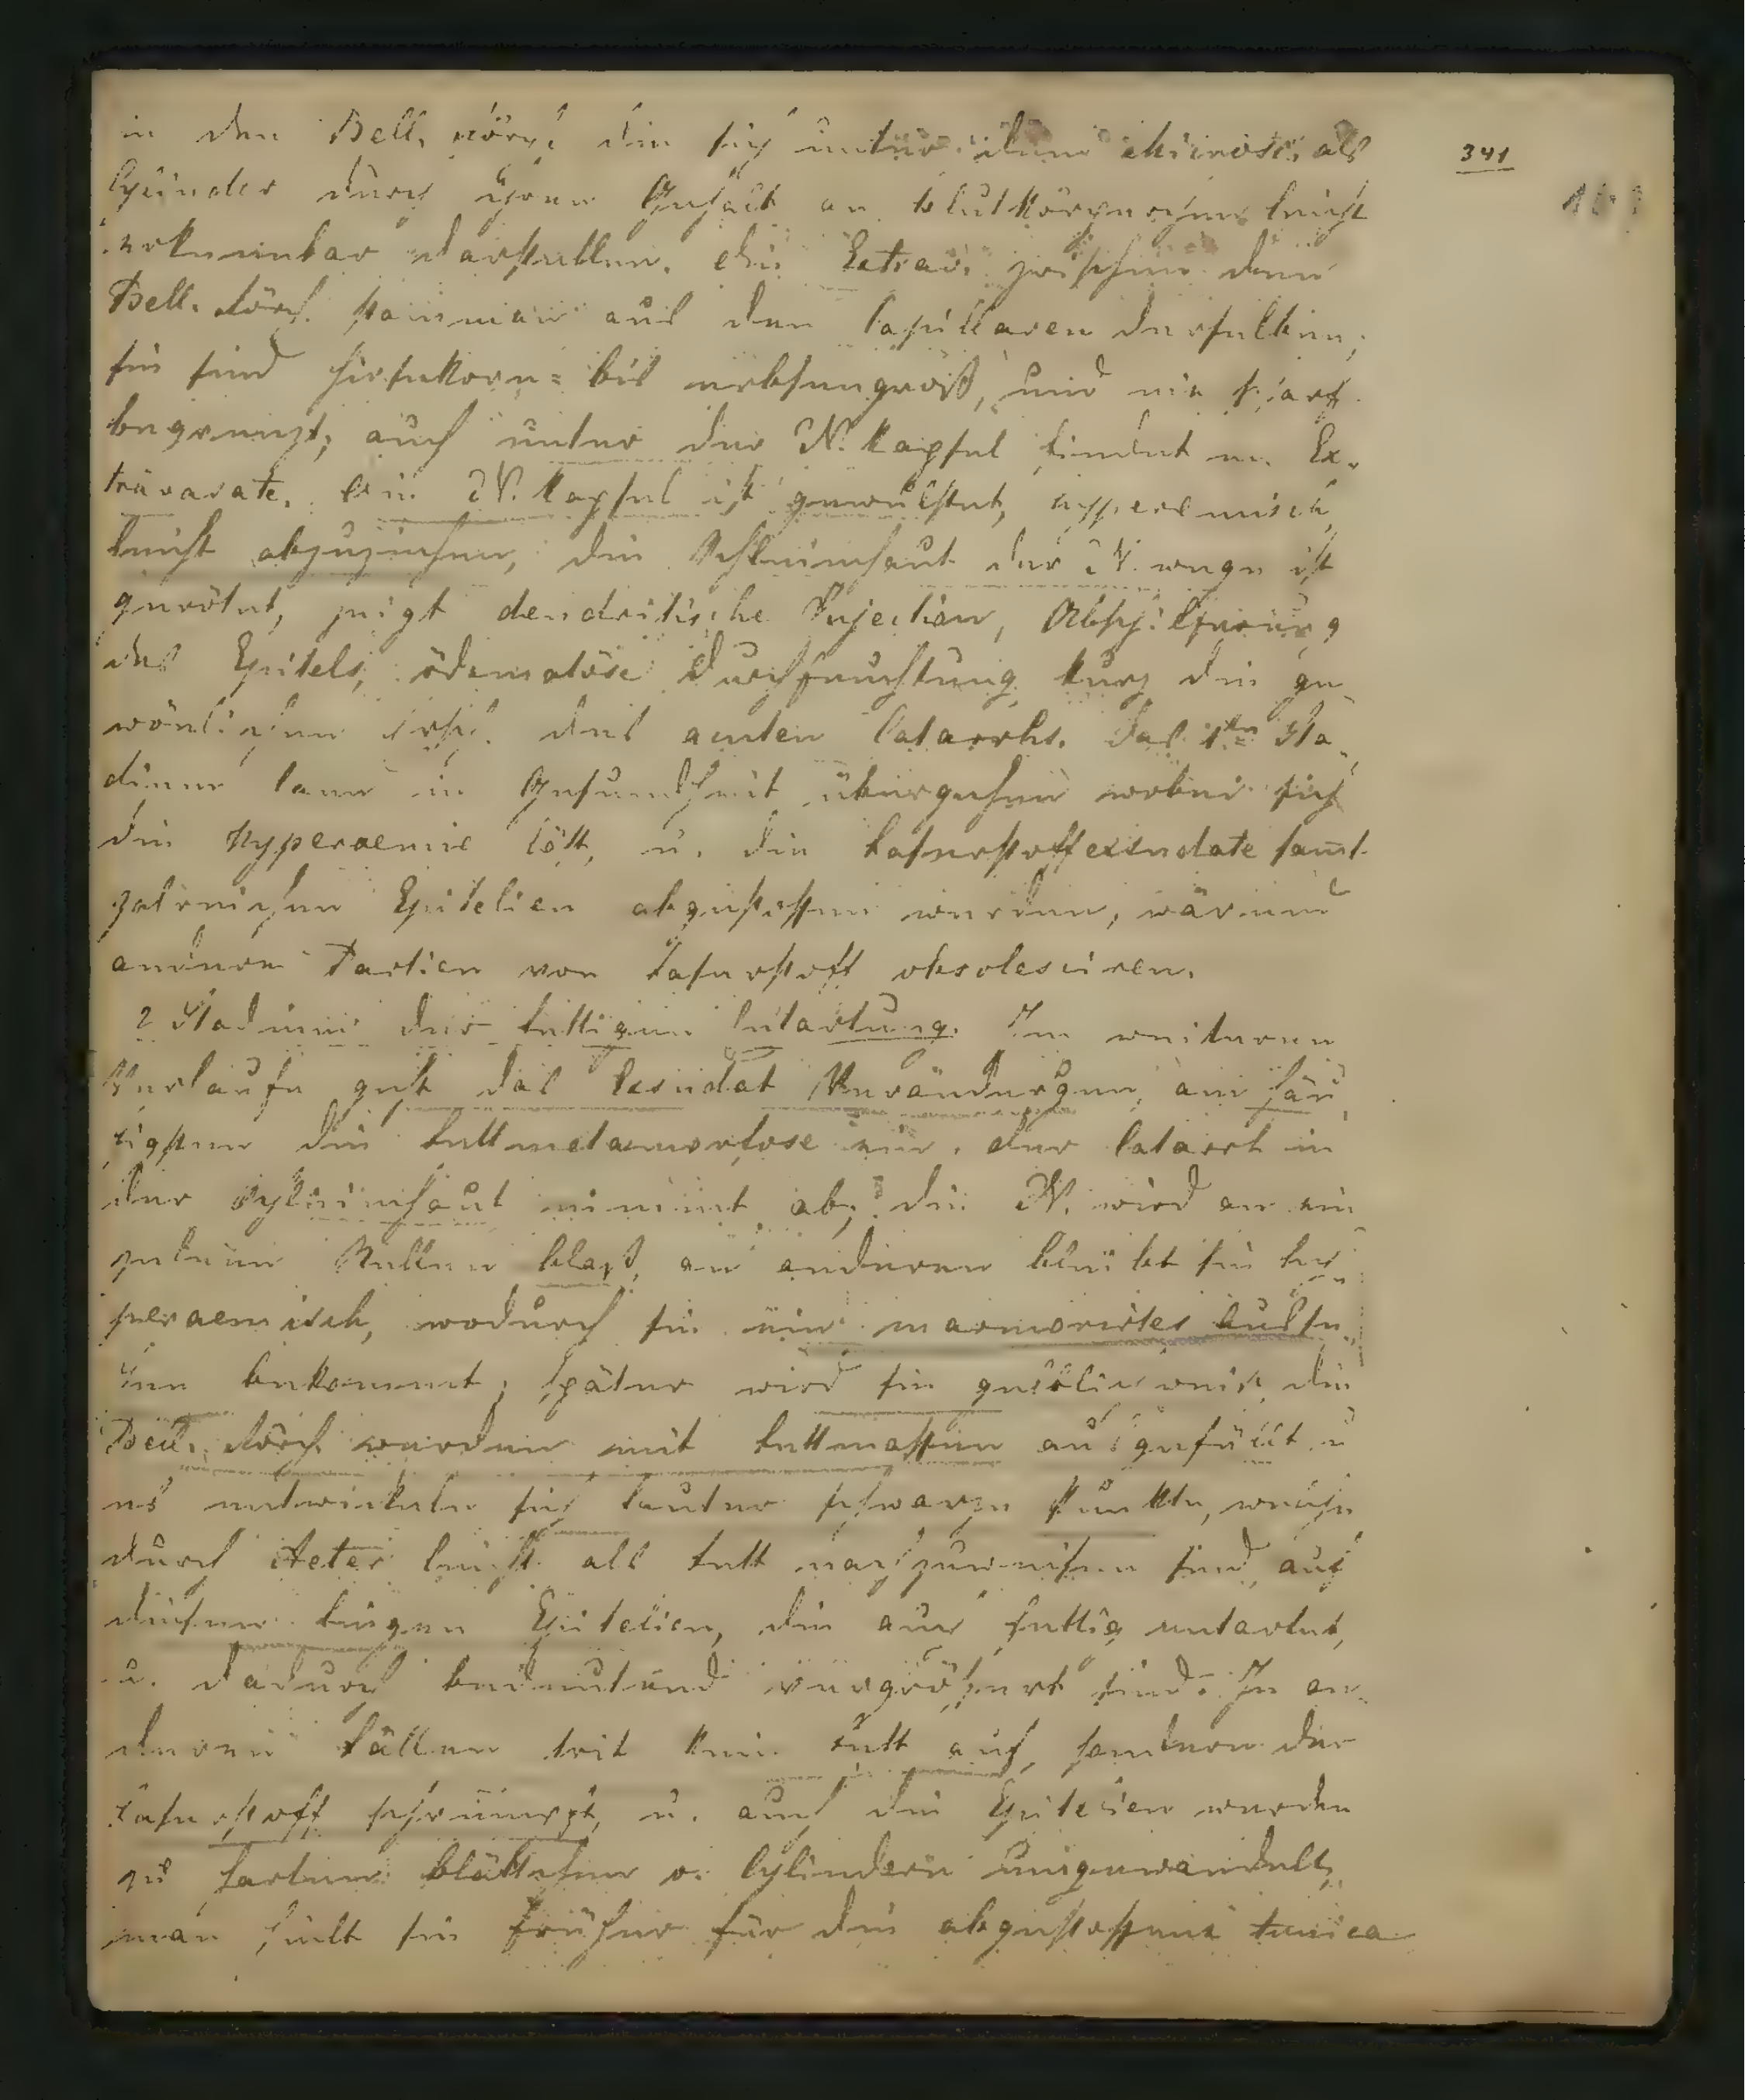 in den Bell. körp. die sich unter dem mikrosc. als
Cylinder durch ihren Gehalt an blutkörperchen leicht
erkennbar darstellen. die Extrav. zwischen den
Bell. körp. stammen aus den Capillaren derselben,
sie sind hirsekorn= bis erbsengroß, und nie scharf
begrenzt, auch unter der N. kapsel findet m. Ex-
travasate. Die N. kapsel ist gewulstet, hyperemisch
leicht abzuziehen, die Schleimhaut der N. wege ist
gerötet, zeigt dendritische Injection, Abschilferung
des Epitels, ödematöse Durchfeuchtung kurz die ge-
wönlichen Ersch. des acuten Catarrhs. Das 1te Sta-
dium kann in Gesundheit übergehen wobei sich
die Hyperaemie löst, u. die faserstoffexsudate samt
zalreichen Epitelien abgestossen werden, wärend
andere Partien von Faserstoff obsolesciren.
2 Stadium der fettigen Entartung. Im weiteren
Verlaufe geht das Exsudat Veränderungen, am häu-
figsten die fettmetamorfose ein. der Catarrh in
der Schleimhaut nimmt ab; die N. wird an ein
zelnen Stellen blaß, an anderen bleibt sie hy-
peraemisch, wodurch sie ein marmorirtes Ausse-
hen bekommt; später wird sie die
Bell. körp. werden mit fettmassen ausgefüllt u
es entwickeln sich lauter schwarze Punkte, welche
durch Aeter leicht als fett nachzuweisen sind, auch
diesen liegen Epitelien, die auch fettig entartet,
u. dadurch bedeutend vergrößert sind. In an-
deren fällen trit kein fett auf, sondern der
Faserstoff schrumpft, u. auch die Epitelien werden
zu harten blättchen o. Cylindern umgewandelt,
man hielt sie früher für die abgestossene tunica
341